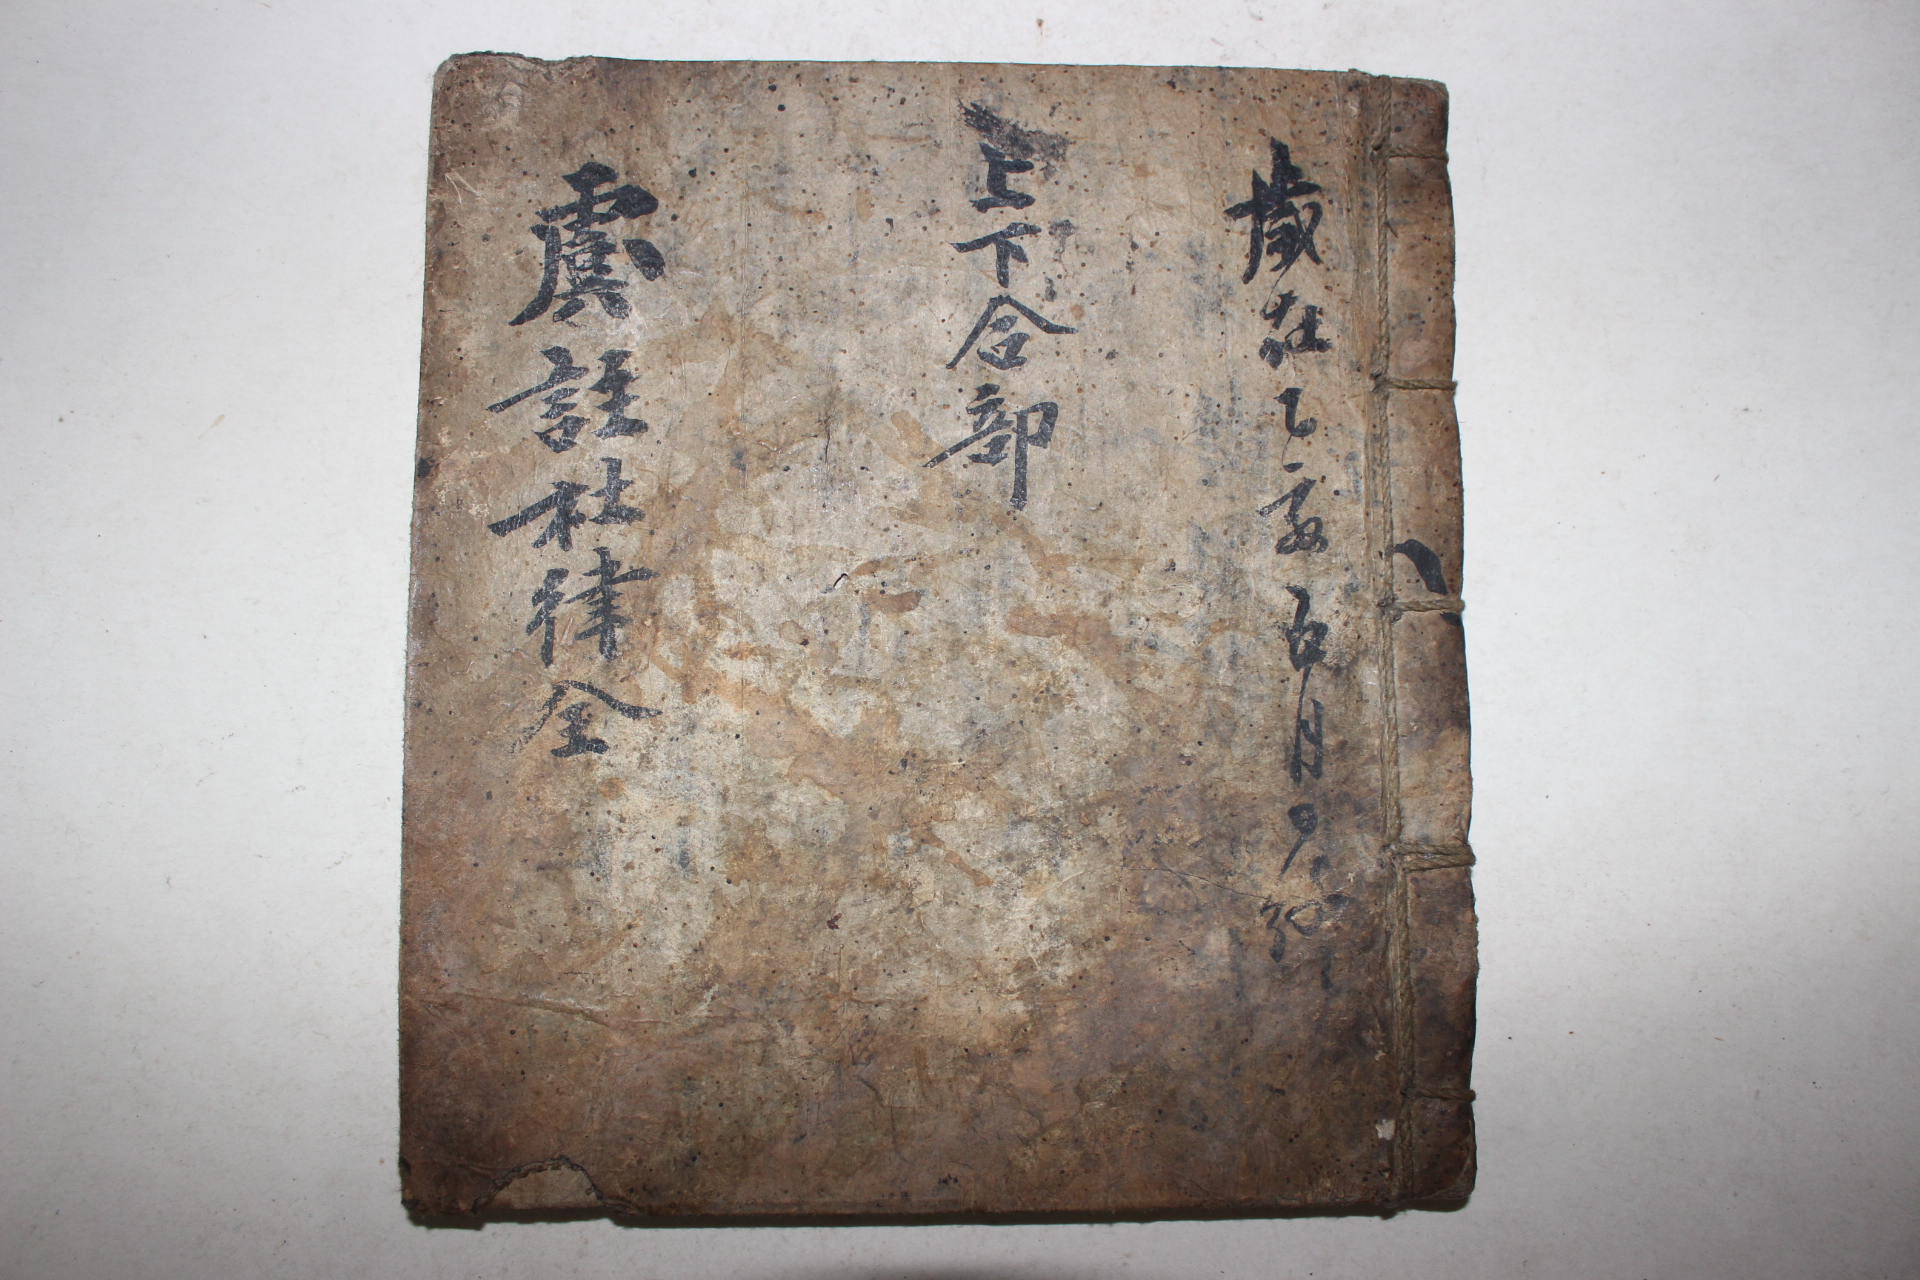 歲在乙亥五月日
上下合部
虞註杜律全